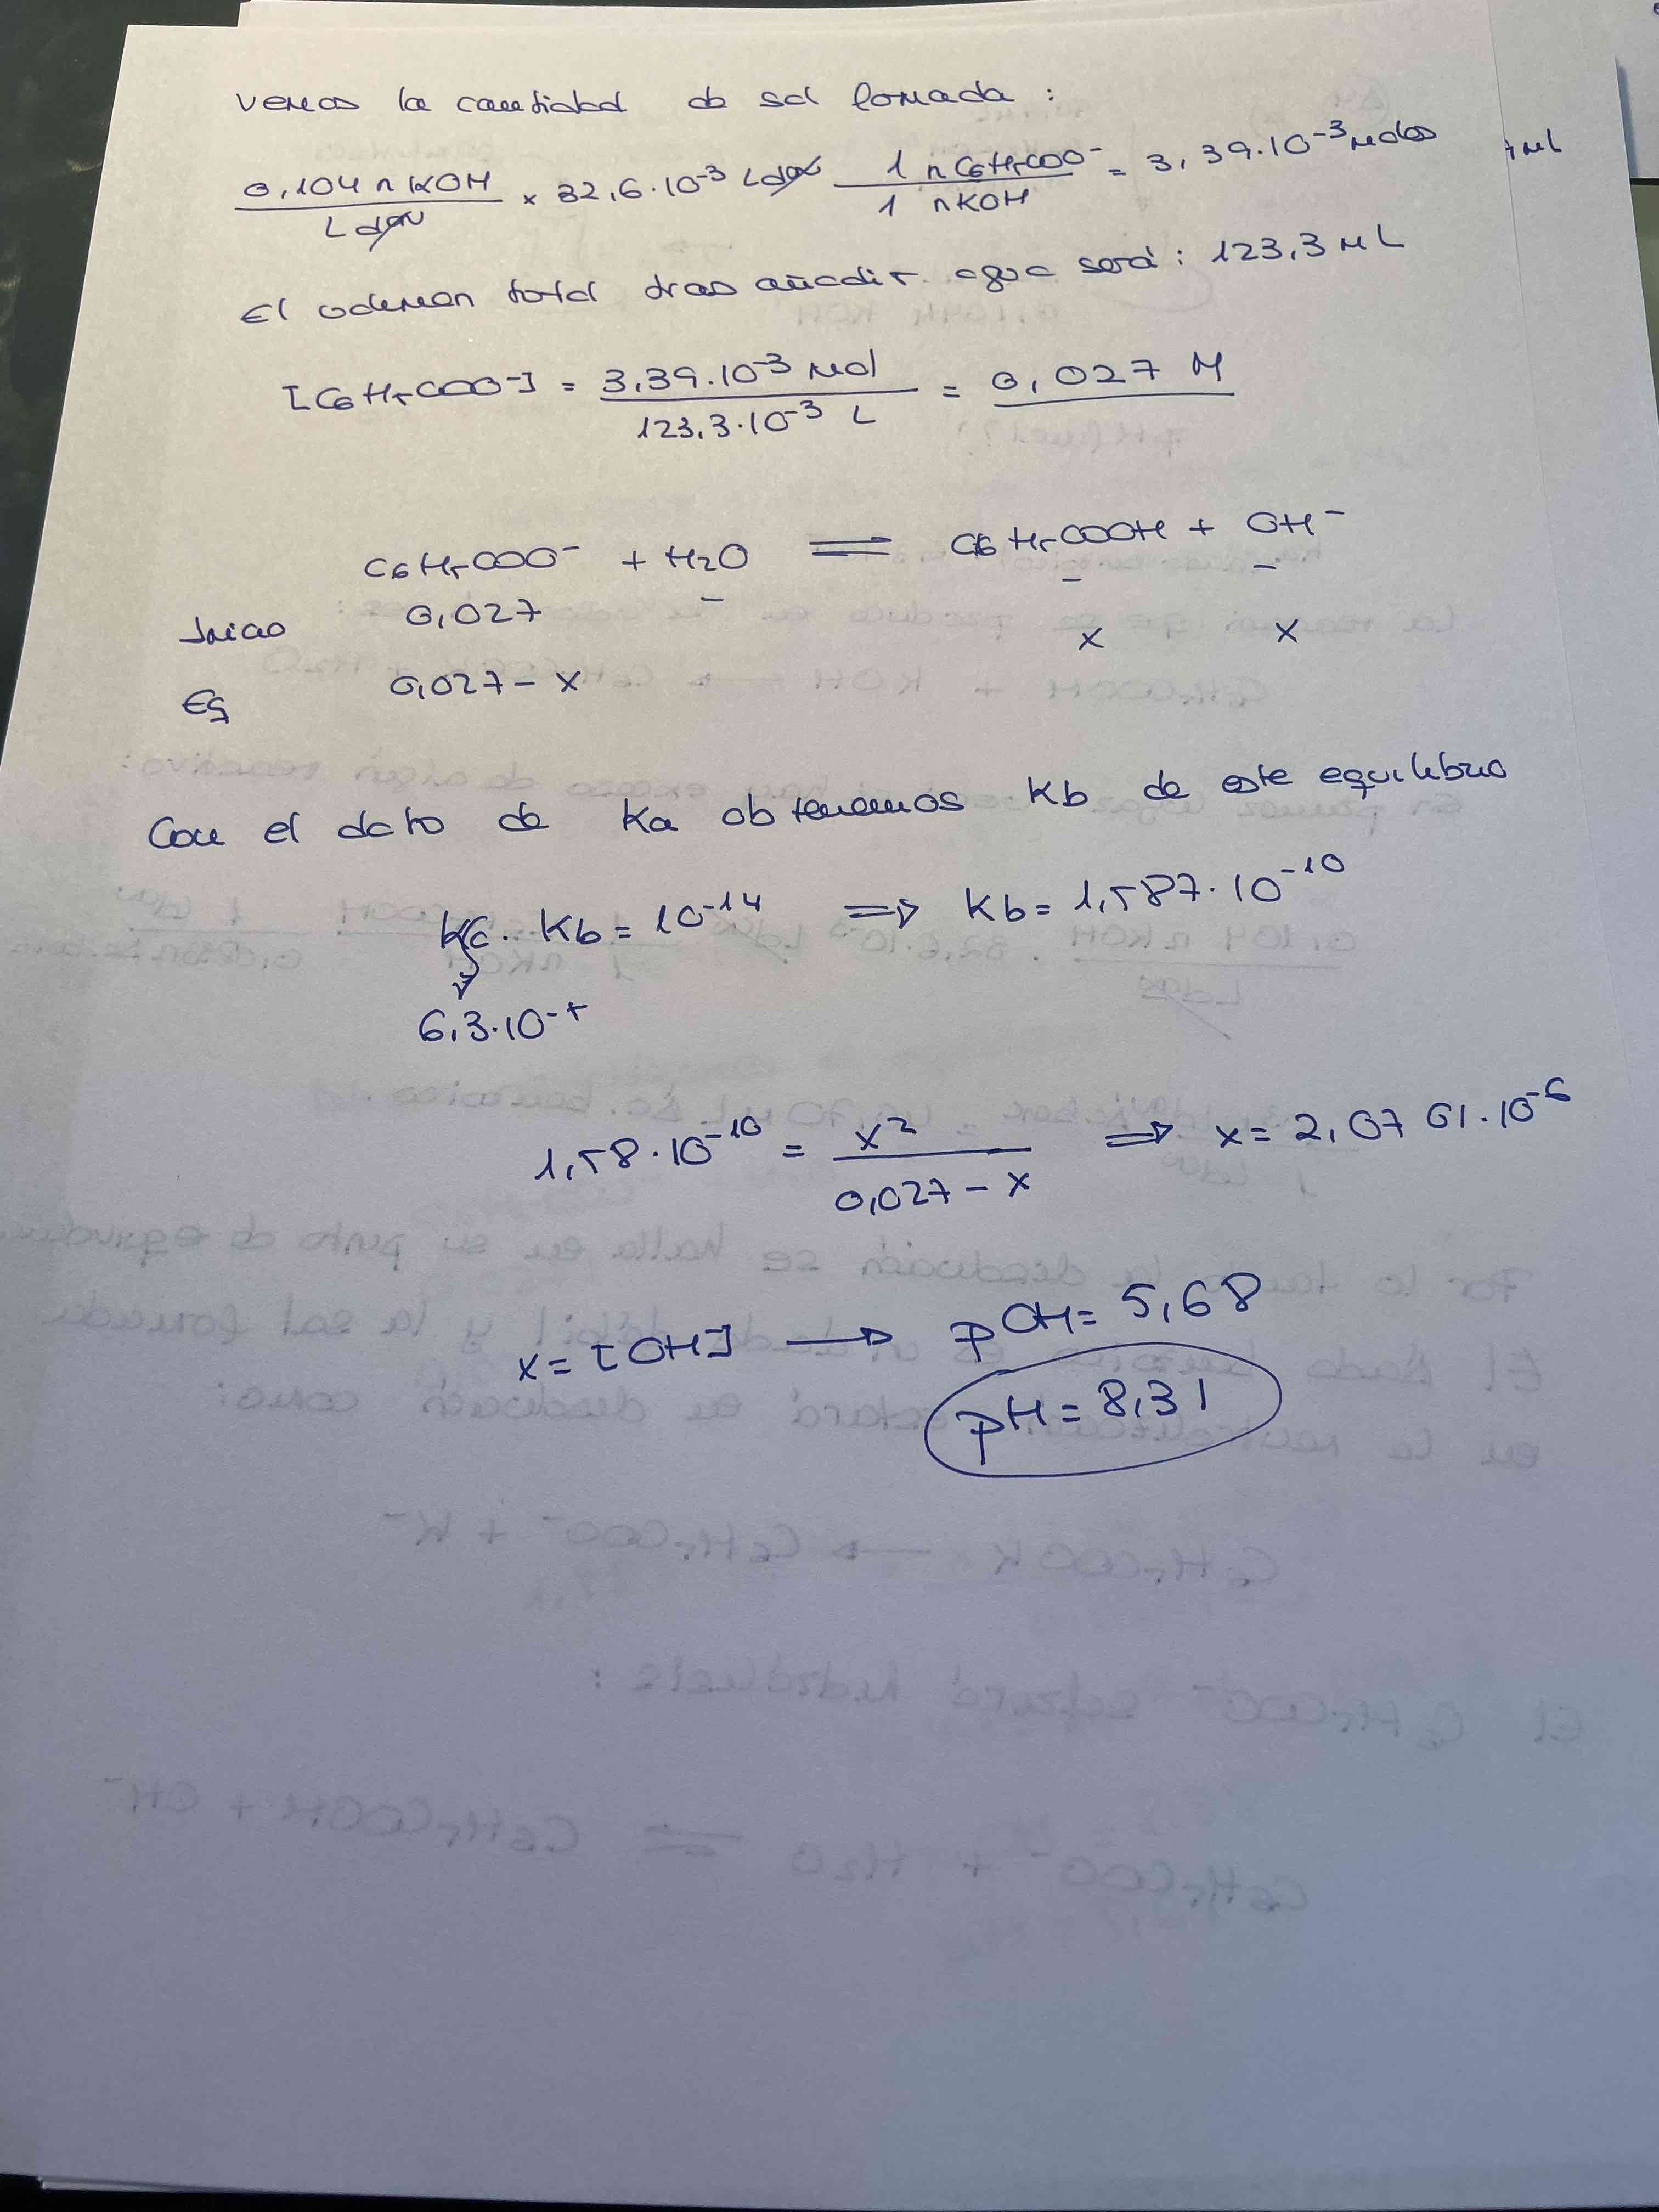 Vemos la cantidad de sal formada :
0,104 n KOH / L dón × 32,6·10⁻³ L dón 1 n C6H5COO⁻ / 1 n KOH = 3,39·10⁻³ moles
mL
El volumen total tras añadir agua será : 123,3 mL
[C6H5COO⁻] = 3,39·10⁻³ mol / 123,3·10⁻³ L = 0,027 M
C6H5COO⁻ + H2O ⇌ C6H5COOH + OH⁻
Inicio 0,027 – – –
Eq 0,027 – x x x
Con el dato de Ka obtenemos Kb de este equilibrio
Ka · Kb = 10⁻¹⁴ ⇒ Kb = 1,587·10⁻¹⁰
6,3·10⁻⁵
1,58·10⁻¹⁰ = x² / 0,027 – x ⇒ x = 2,0761·10⁻⁶
x = [OH] → pOH = 5,68
pH = 8,31